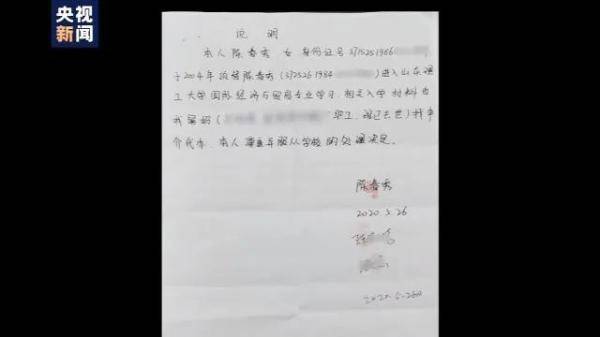 央视
新闻
说 明
本人陈春秀 女 身份证号 3715251986
于2004年顶替陈春秀(372526 1984 )进入山东理
工大学国际经济与贸易专业学习,相关入学材料由
我舅舅( 职工,现已去世)找中
介代办,本人尊重并服从学校的处理决定。
陈春秀
2020.5.26
2020.5.26